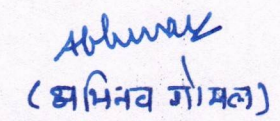 Abhinav
(अभिनव गोयल)